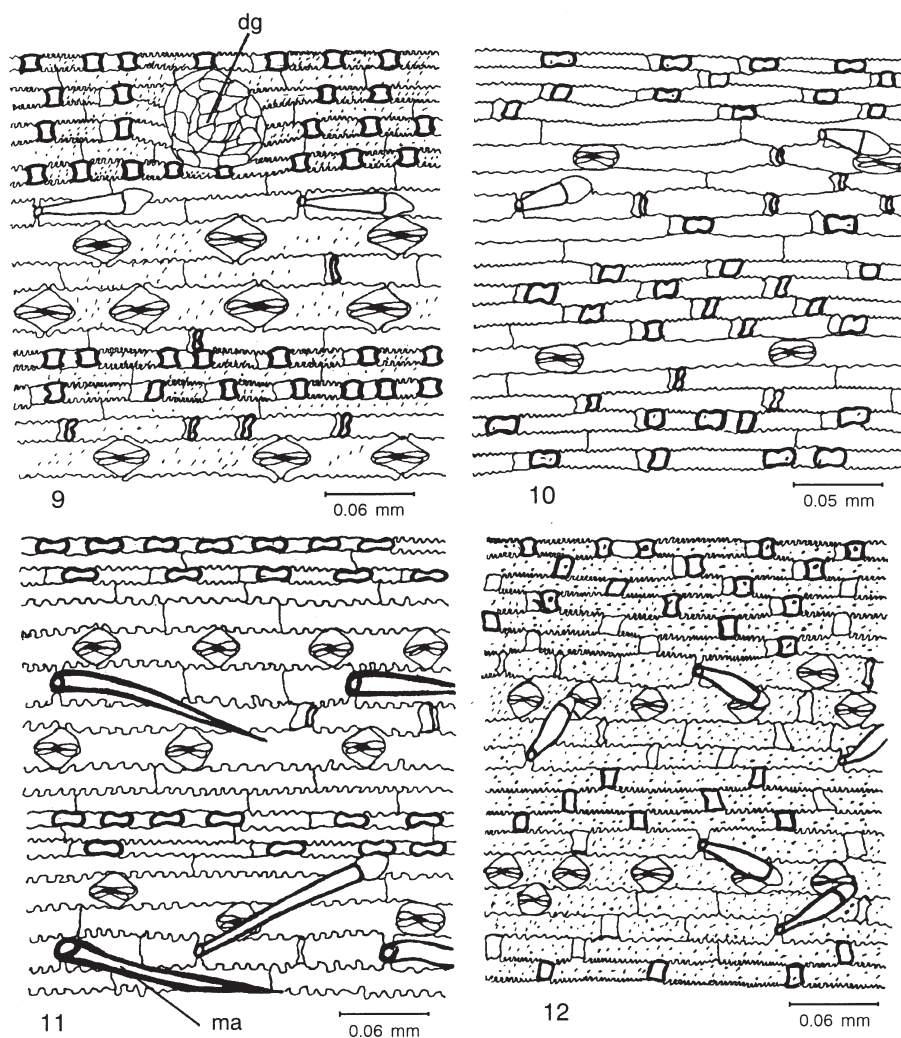 dg
9
0.06 mm
10
0.05 mm
11
ma
0.06 mm
12
0.06 mm